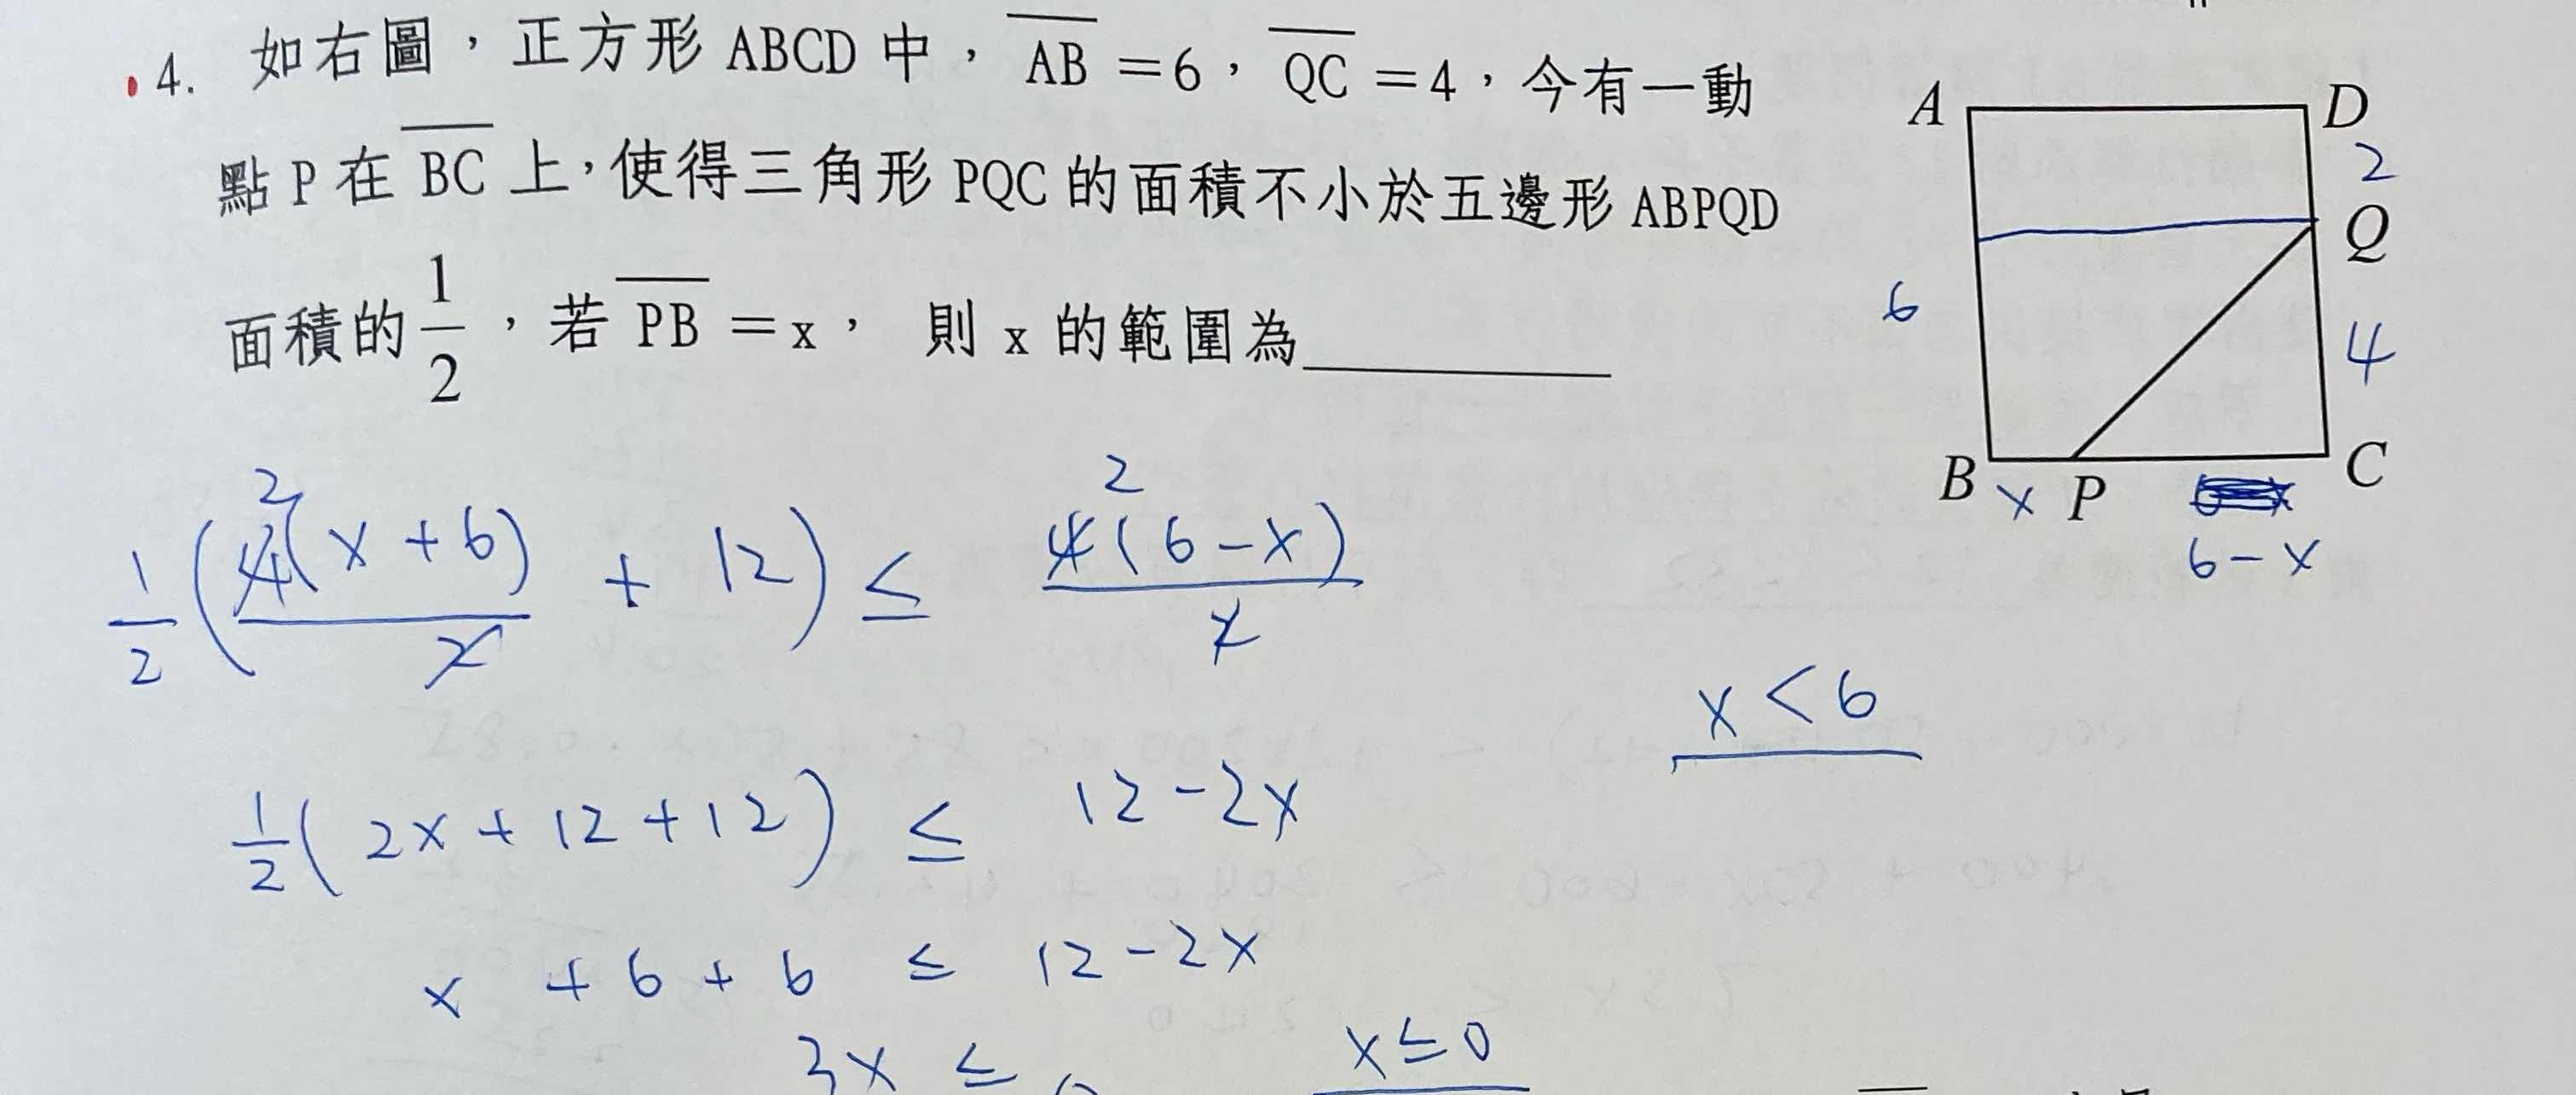 4. 如右圖，正方形 ABCD 中，AB =6，QC =4，今有一動
點 P 在 BC 上，使得三角形 PQC 的面積不小於五邊形 ABPQD
面積的 1/2，若 PB =x， 則 x 的範圍為________
A D
2
Q
6
4
B x P C
6-x
1/2 (4(x+6)/2 + 12) ≤ 4(6-x)/2
2 2
x<6
1/2 (2x+12+12) ≤ 12-2x
x +6+6 ≤ 12-2x
3x ≤ x≤0